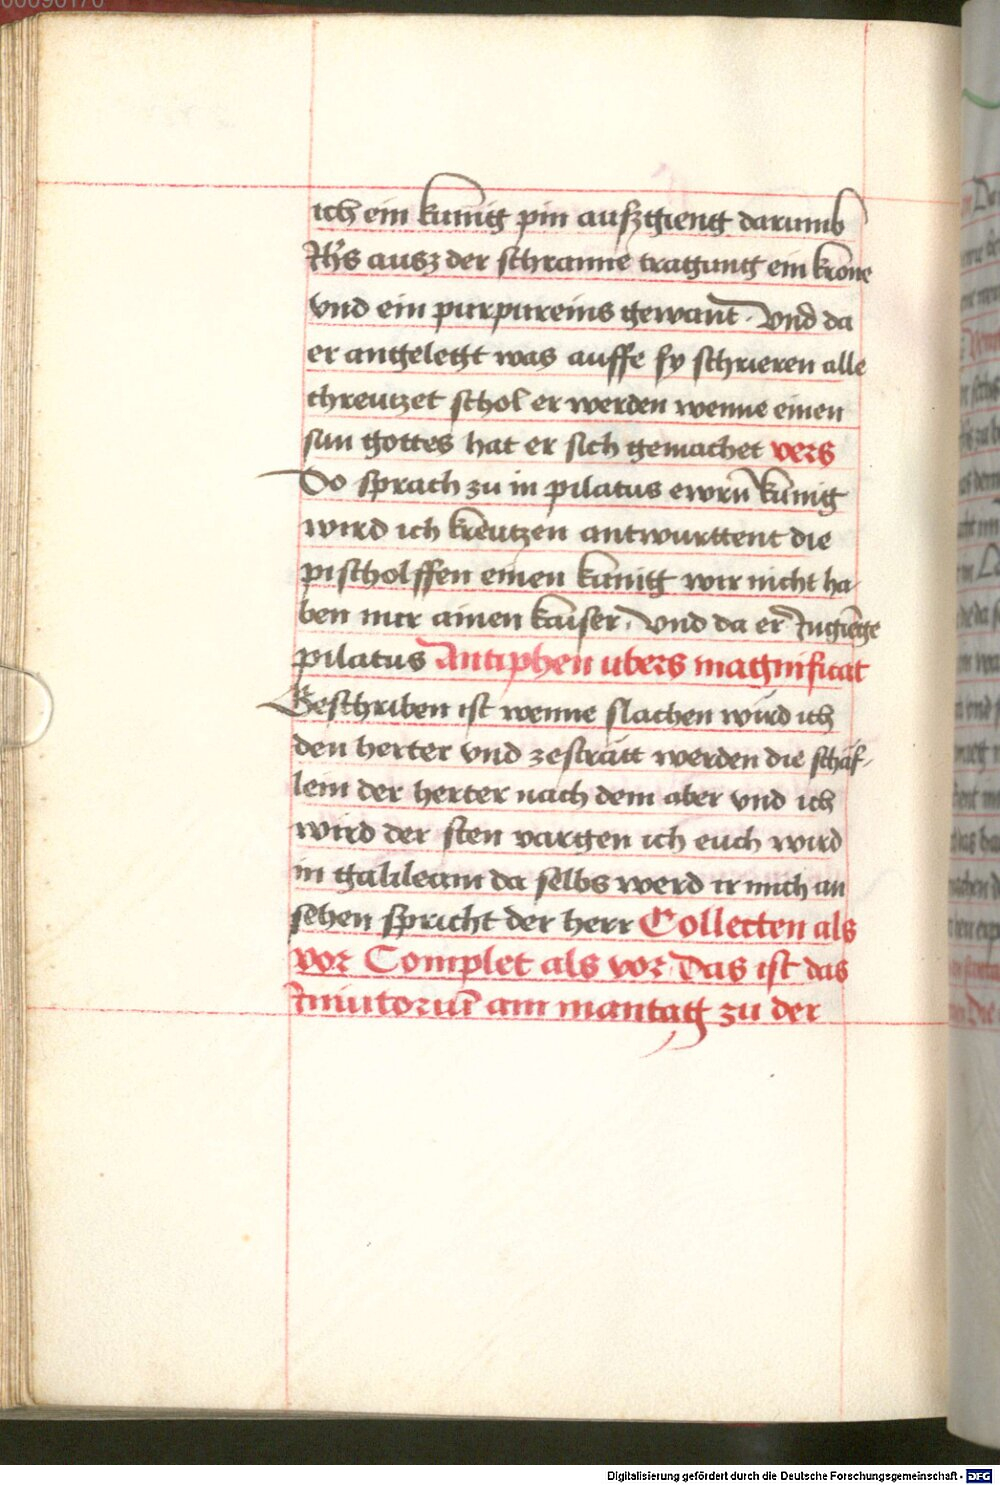 ich ein kunig pin auszgieng darumb
Jhs ausz der schranne tragung ein krone
vnd ein purpureins gewant · Vnd da
er angelegt was auffe sy schrieren alle
chreutzet schol er werden wenne einen
sun gottes hat er sich gemachet vers
Do sprach zu in pilatus ewrn kunig
wird ich kreutzen antwurttent die
pischolffen einen kunig wir nicht ha
ben nur ainen kaiser · Vnd da er
pilatus Antiphen ubers magnificat
Geschriben ist wenne slachen wird ich
den herter vnd zestratt werden die schäf-
lein der herter nach dem aber vnd ich
wird der sten vargen ich euch wird
in galileam da selbs werd ir mich an
sehen spricht der herr Collecten als
vor Complet als vor · Das ist das
am mantag zu der
Digitalisierung gefördert durch die Deutsche Forschungsgemeinschaft - DFG